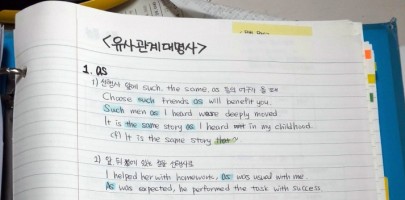 <유사관계대명사>
1. as
1) 선행사 앞에 such, the same, as 등의 어구가 올 때
Choose such friends as will benefit you.
Such men as I heard were deeply moved
It is the same story as I heard in my childhood.
It is the same story that
2) 앞 뒤 있는
I helped her with homework, as was usual with me.
As was expected, he performed the task with success.